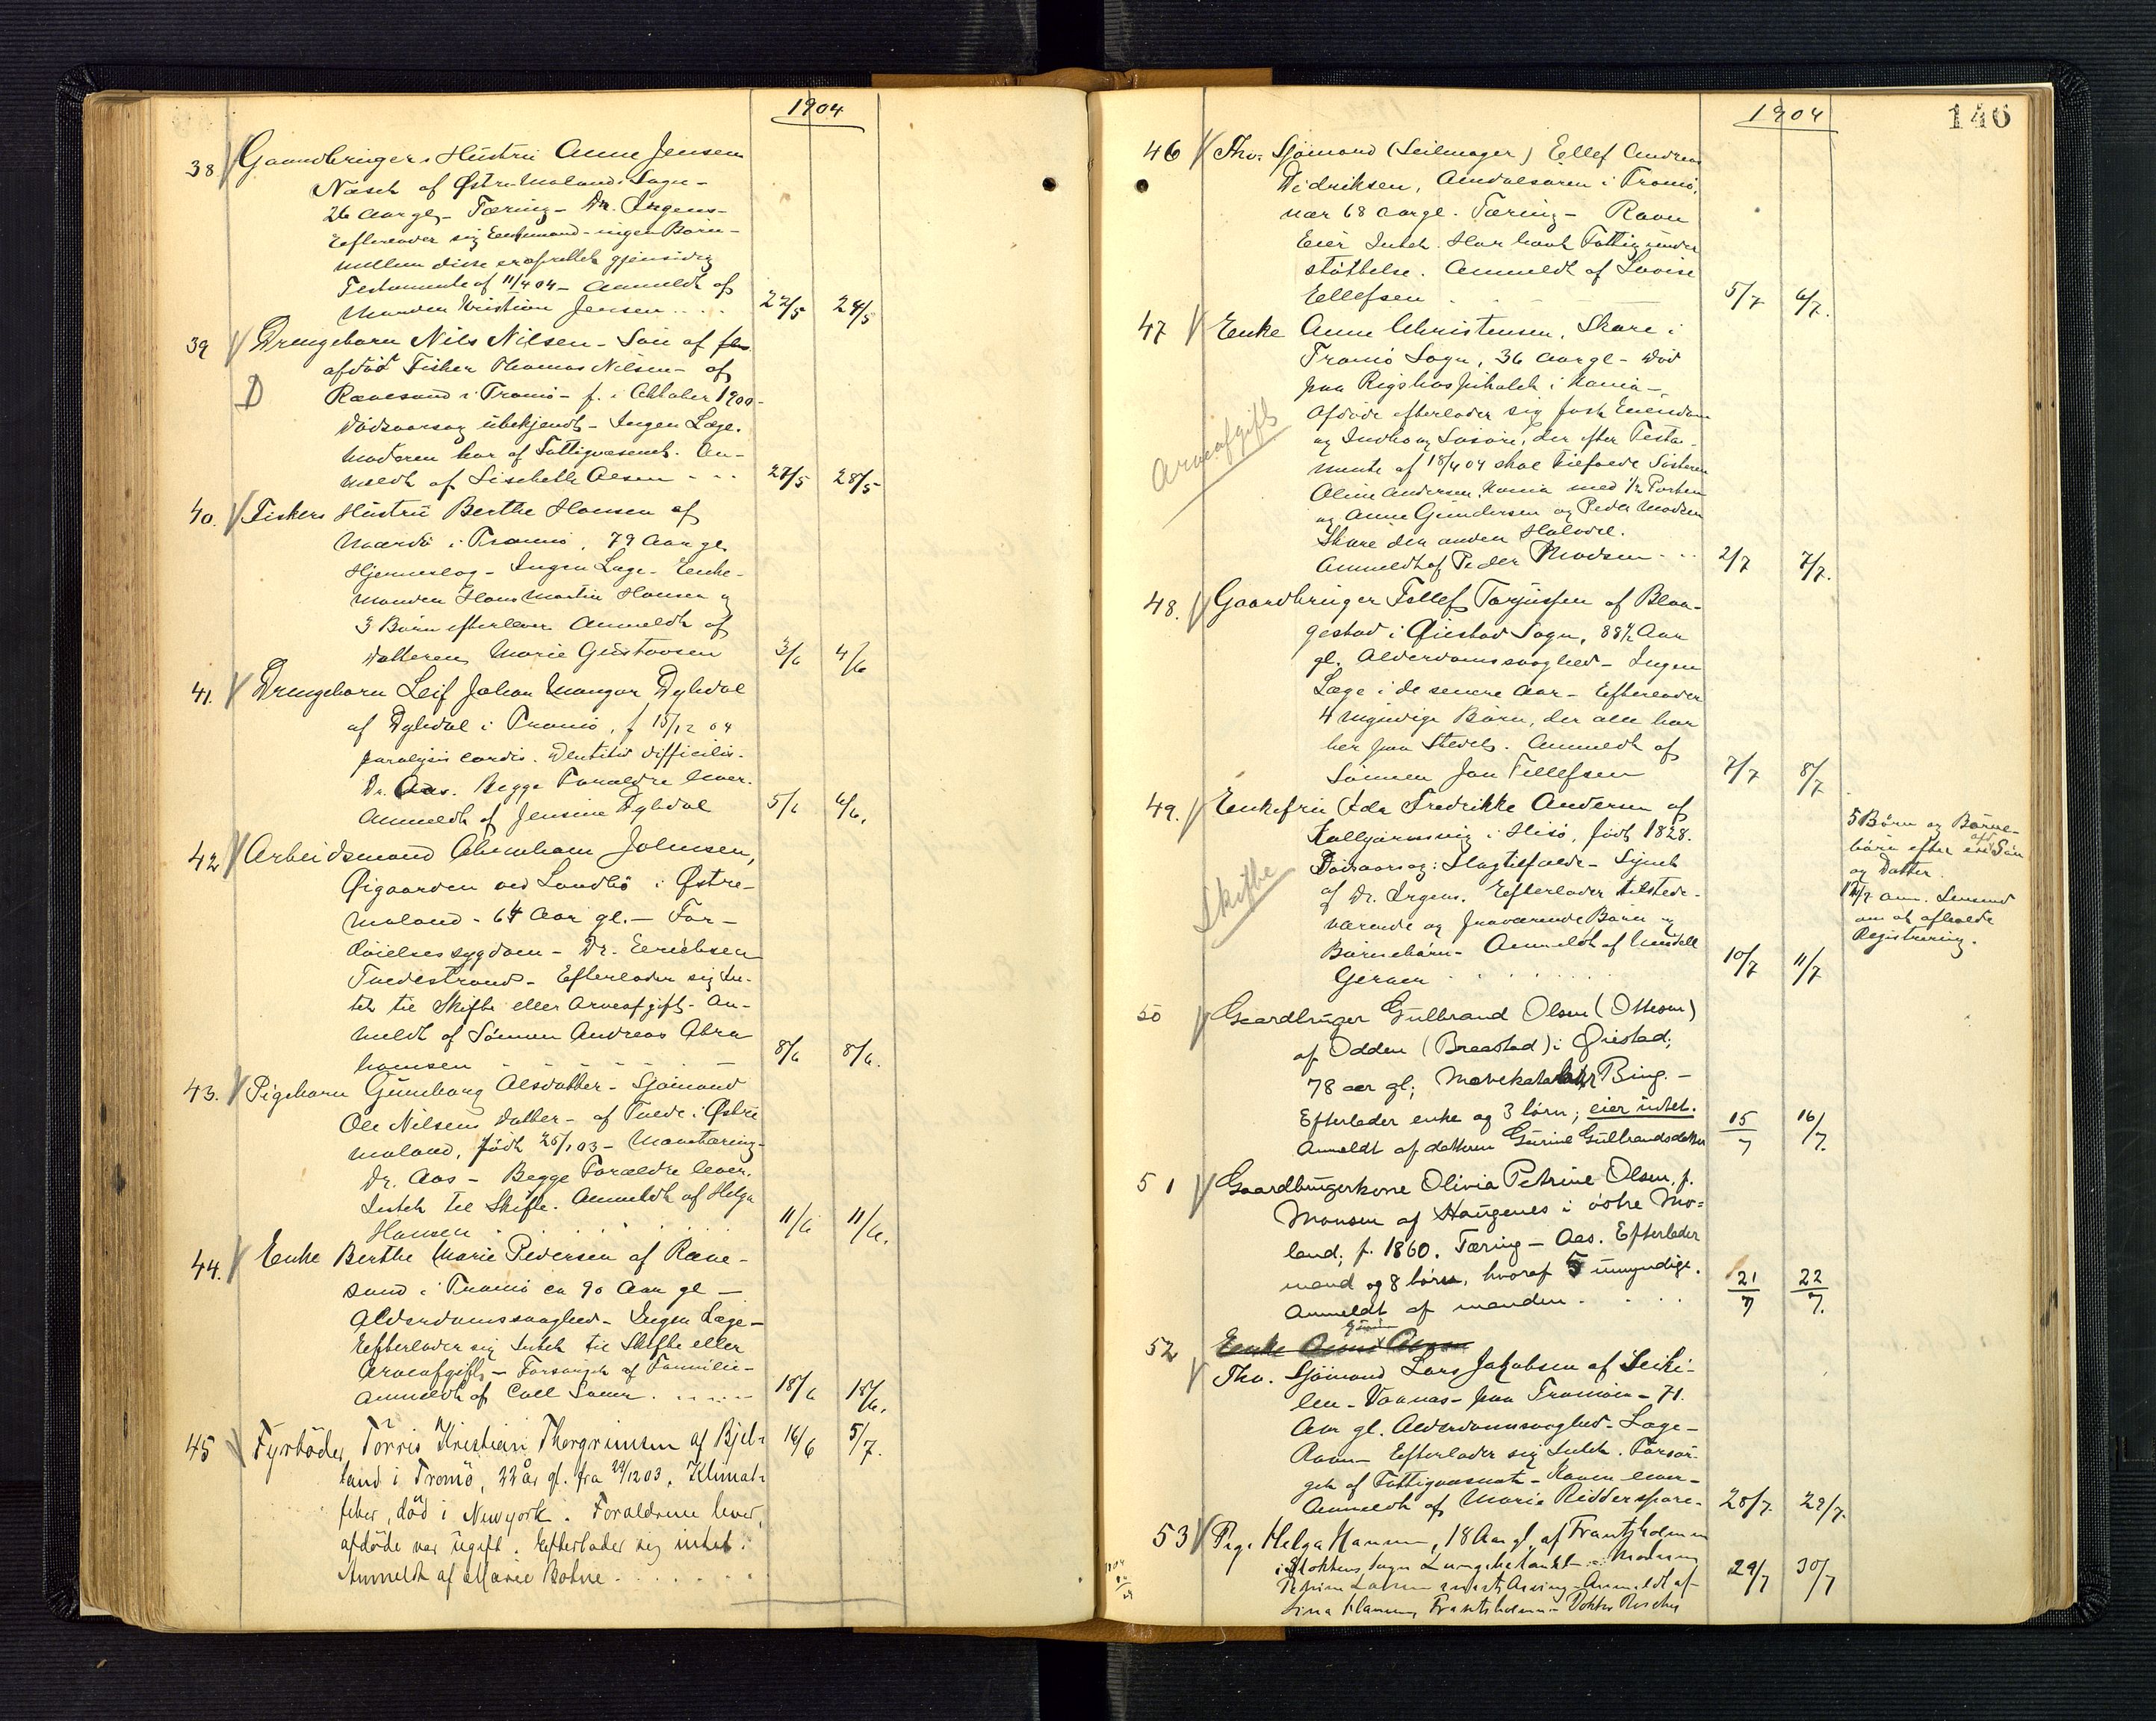 1904
38 Gaardbruger Hustru Anne Jensen
Næset af Østre Molands Sogn -
26 Aar gl. - Tæring - Dr. Irgens -
Efterlader sig Enkemand - ingen Børn -
mellem disse er oprettet gjensidig
Testamente af 11/4 04 - Anmeldt af
Manden Kristian Jensen . . . . 27/5 28/5
39 Drengebarn Nils Nilsen - Søn af
afdød Fisker Thomas Nilsen - af
D Rævesand i Tromø - f. i Oktober 1900 -
Dødsaarsag ubekjendt - Ingen Læge.
Moderen har af Fattigvæsenet. An-
meldt af Lisebeth Olsen - . . 27/5 28/5
40. Fiskers Hustru Berthe Hansen af
Mærdø i Tromø, 79 Aar gl.
Hjerneslag - Ingen Læge - Enke-
manden Hans Martin Hansen og
3 Børn efterlever Anmeldt af
Datteren Marie Gustavsen 3/6 4/6
41. Drengebarn Leif Johan Dybdal
af Dybdal i Tromø, f 15/12 04
paralysis cordis. Dentitio difficilis.
Dr. Aas. Begge Forældre lever.
Anmeldt af Jensine Dybdal 5/6 6/6.
42 Arbeidsmand Abraham Johnsen,
Øigaarden ved Landbø i Østre-
moland - 64 Aar gl. - For-
døielsessygdom - Dr. Erichsen
Tvedestrand - Efterlader sig In-
tet til Skifte eller Arveafgift - An-
meldt af Sønnen Andreas Abra
hamsen 8/6 8/6.
43. Pigebarn Gunborg Olsdatter - Sjømand
Ole Nilsens Datter - af Tvede i Østre
moland, født 25/1 03 - Mavetæring -
Dr. Aas - Begge Forældre lever.
Intet til Skifte. Anmeldt af Helga
Hansen . . . . 11/6 11/6.
44. Enke Berthe Marie Pedersen af Ræve-
sand i Tromø ca 90 Aar gl -
Alderdomssvaghed - Ingen Læge -
Efterlader sig Intet til Skifte eller
Arveafgift - Forsørget af Familie -
Anmeldt af . . . . 18/6 18/6.
45 Fyrbøder Torris Kristian Thorgrimsen af Bjel- 16/6 5/7.
land i Tromö, 22 år gl. fra 29/12 03. Klimat-
feber, död i Newyork. Forældrene lever,
afdöde var ugift. Efterlader sig intet.
Anmeldt af Marie Bohne . . . . .
1904
146
46 Fhv. Sjømand (Seilmager) Ellef Andreas
Didriksen, i Tromø,
nær 68 Aar gl. Tæring - Ravn
Eier Intet. Har havt Fattigunder
støttelse. Anmeldt af Lovise
Ellefsen . . . 5/7 6/7.
47 Enke Anne Christensen, Skare i
Tromø Sogn, 36 Aar gl - død
paa Rigshospitalet i Kania -
Afdøde efterlader sig fast Eiendom
og Indbo og Løsøre, der efter Testa-
mente af 18/4 04 skal tilfalde Søsteren
Oline Andersen, Kania med 1/2 Parten
og Anne Gundersen og Peder Madsen
Skare den anden Halvdel.
Anmeldt af Peder Madsen . . . 2/7 7/7.
Arveafgift
48. Gaardbruger Tellef Torjussen af Blaa-
gestad i Øiestad Sogn, 88 1/2 Aar
gl. Alderdomssvaghed - Ingen
Læge i de senere Aar - Efterlader
4 myndige Børn, der alle bor
her paa Stedet. Anmeldt af
Sønnen Jon Tellefsen 7/7 8/7
49. Enkefru Ida Fredrikke Andersen af
Kolbjørnsvig i Hisø, født 1828.
Dødsaarsag: Slagtilfælde - Synet
af Dr. Irgens. Efterlader tilstede-
værende og fraværende Børn og
Børnebørn - Anmeldt af
. . . . 10/7 11/7
Skifte
5 Børn og Børne-
børn efter en afd Søn
og Datter
12/7 anm. Lensmd
om at afholde
Registrering.
50 Gaardbruger Gulbrand Olsen (Ottersen)
af Odden (Breastad) i Øiestad;
78 aar gl; Mavekatarrh Bing. -
Efterlader enke og 3 börn; eier intet.
Anmeldt af datteren Gurine Gulbrandsdatter 15/7 16/7.
51 Gaardbrugerkone Olivia Petrine Olsen, f.
Monsen af Haugenes i östre Mo=
land; f. 1860. Tæring - Aas. Efterlader
mand og 8 börn, hvoraf 5 umyndige.
Anmeldt af manden . . . . 21/7 22/7.
52 Enke Anne
Fhv. Sjømand Lars Jakobsen af Leiki-
len - Vaanas - paa Tromøen - 71
Aar gl. Alderdomssvaghed - Læge -
Ravn - Efterlader sig Intet. Forsør-
get af Fattigvæsenet - Konen lever -
Anmeldt af Marie Ridderspore - 28/7. 29/7.
53 Pige Helga Hansen, 18 Aar gl, af Frantzholmen
i Stokken Sogn Lungebetændelse - Moderen
Petrine Larsen eneste Arving - Anmeldt af
Lina Hansen, Frantsholmen - Doktor 29/7 30/7